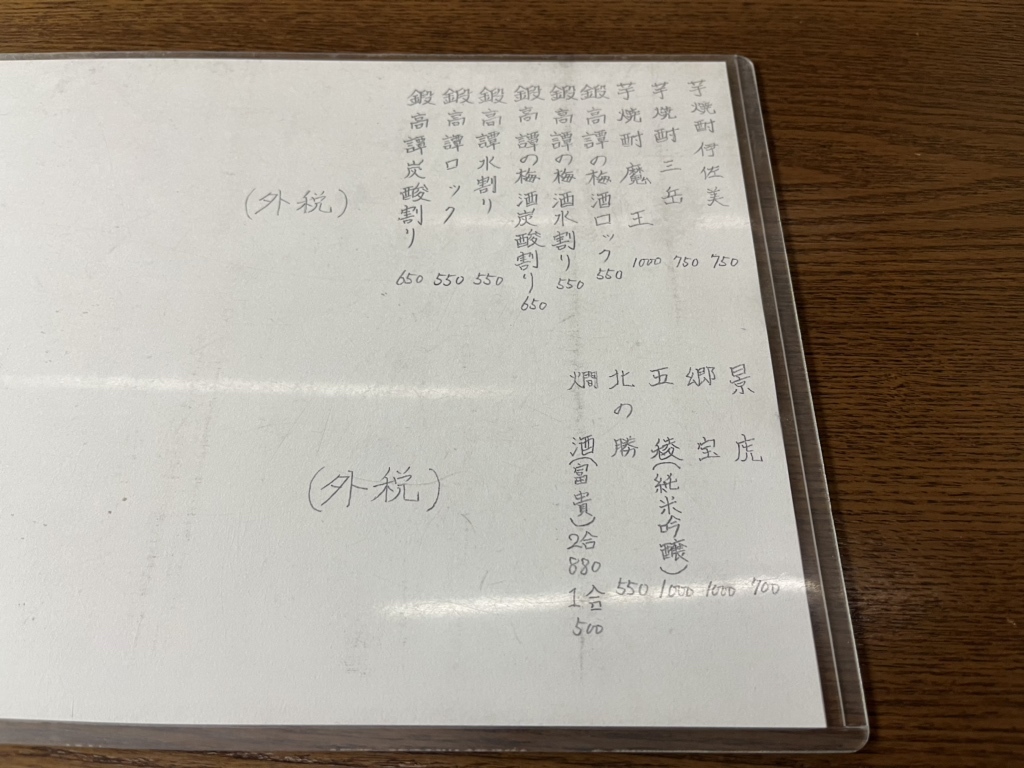 芋焼酎 伊佐美 750
芋焼酎 三岳 750
芋焼酎 魔王 1000
鍛高譚の梅酒ロック 550
鍛高譚の梅酒水割り 550
鍛高譚の梅酒炭酸割り 650
鍛高譚水割り 550
鍛高譚ロック 550
鍛高譚炭酸割り 650
(外税)
景虎 700
郷宝 1000
五稜(純米吟醸) 1000
北の勝 550
燗酒(富貴)2合 880 1合 500
(外税)